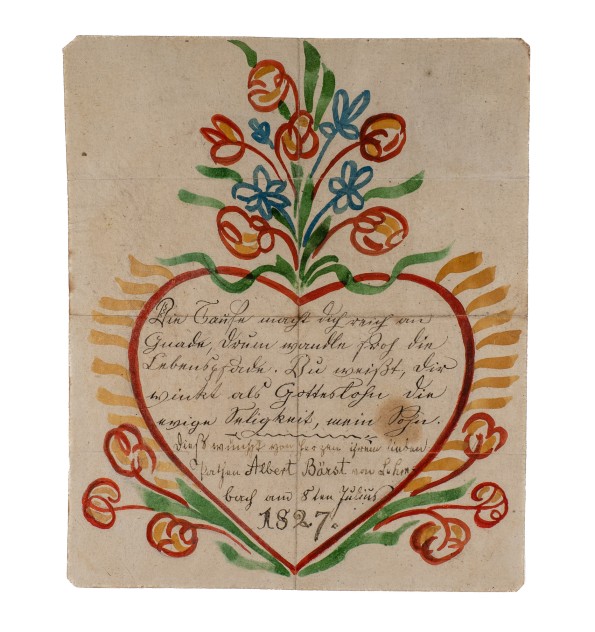 Die Taufe macht dich reich an
Gnade, Drum wandle froh die
Lebenspfade. Du weißt, Dir
winkt als Gotteslohn die
ewige Seligkeit, mein Sohn.
Dieß wünscht von herzen ihrem lieben
Pathen Albert Bärst von Lehm-
bach am 8ten Julius
1827.